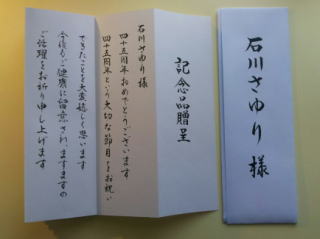 石川さゆり 様
記念品贈呈
石川さゆり様
四十五周年おめでとうございます
四十五周年という大切な節目をお祝い
できたことを大変嬉しく思います
今後もご健康に留意されますますの
ご活躍をお祈り申し上げます